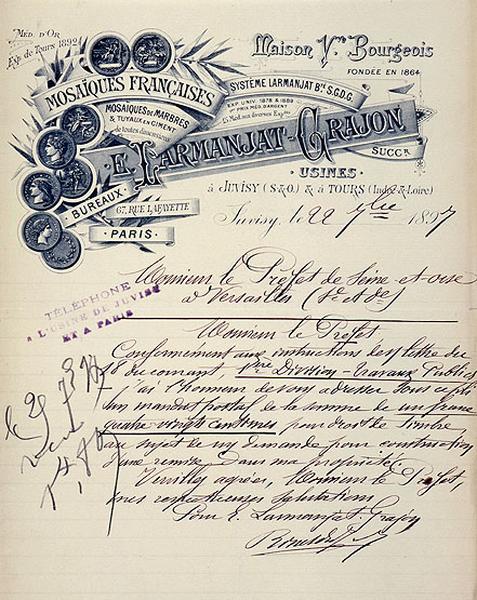 Méd. d'Or
Exp. de Tours 1892
Maison Vve Bourgeois
FONDÉE EN 1864
MOSAÏQUES FRANÇAISES
SYSTÈME LARMANJAT Bté S.G.D.G.
MOSAIQUES DE MARBRES
& TUYAUX EN CIMENT
de toutes dimensions
EXP. UNIV. 1878 & 1889
E. LARMANJAT-GRAJON
SUCCR
USINES
à JUVISY (S&O.) & à TOURS (Indre & Loire)
BUREAUX
67, RUE LAFAYETTE
PARIS
Juvisy, le 22 7bre 1897
Monsieur le Préfet de Seine-et-oise
à Versailles (Set de)
TÉLÉPHONE
A L'USINE DE JUVISY
ET A PARIS
Monsieur le Préfet
Conformement aux instructions de lettre du
8 du courant, 1ère Division - Travaux Publics
j'ai l'honneur de vous adresser sous ce pli
un mandat postal de la somme de un franc
quatre vingt centimes pour droit de timbre
au sujet de ma demande pour construction
d'une remise dans ma propriété.
Veuillez agréer, Monsieur le Préfet,
mes respectueuses salutations
Pour E. Larmanjat-Grajon
le 29 7
1f,80